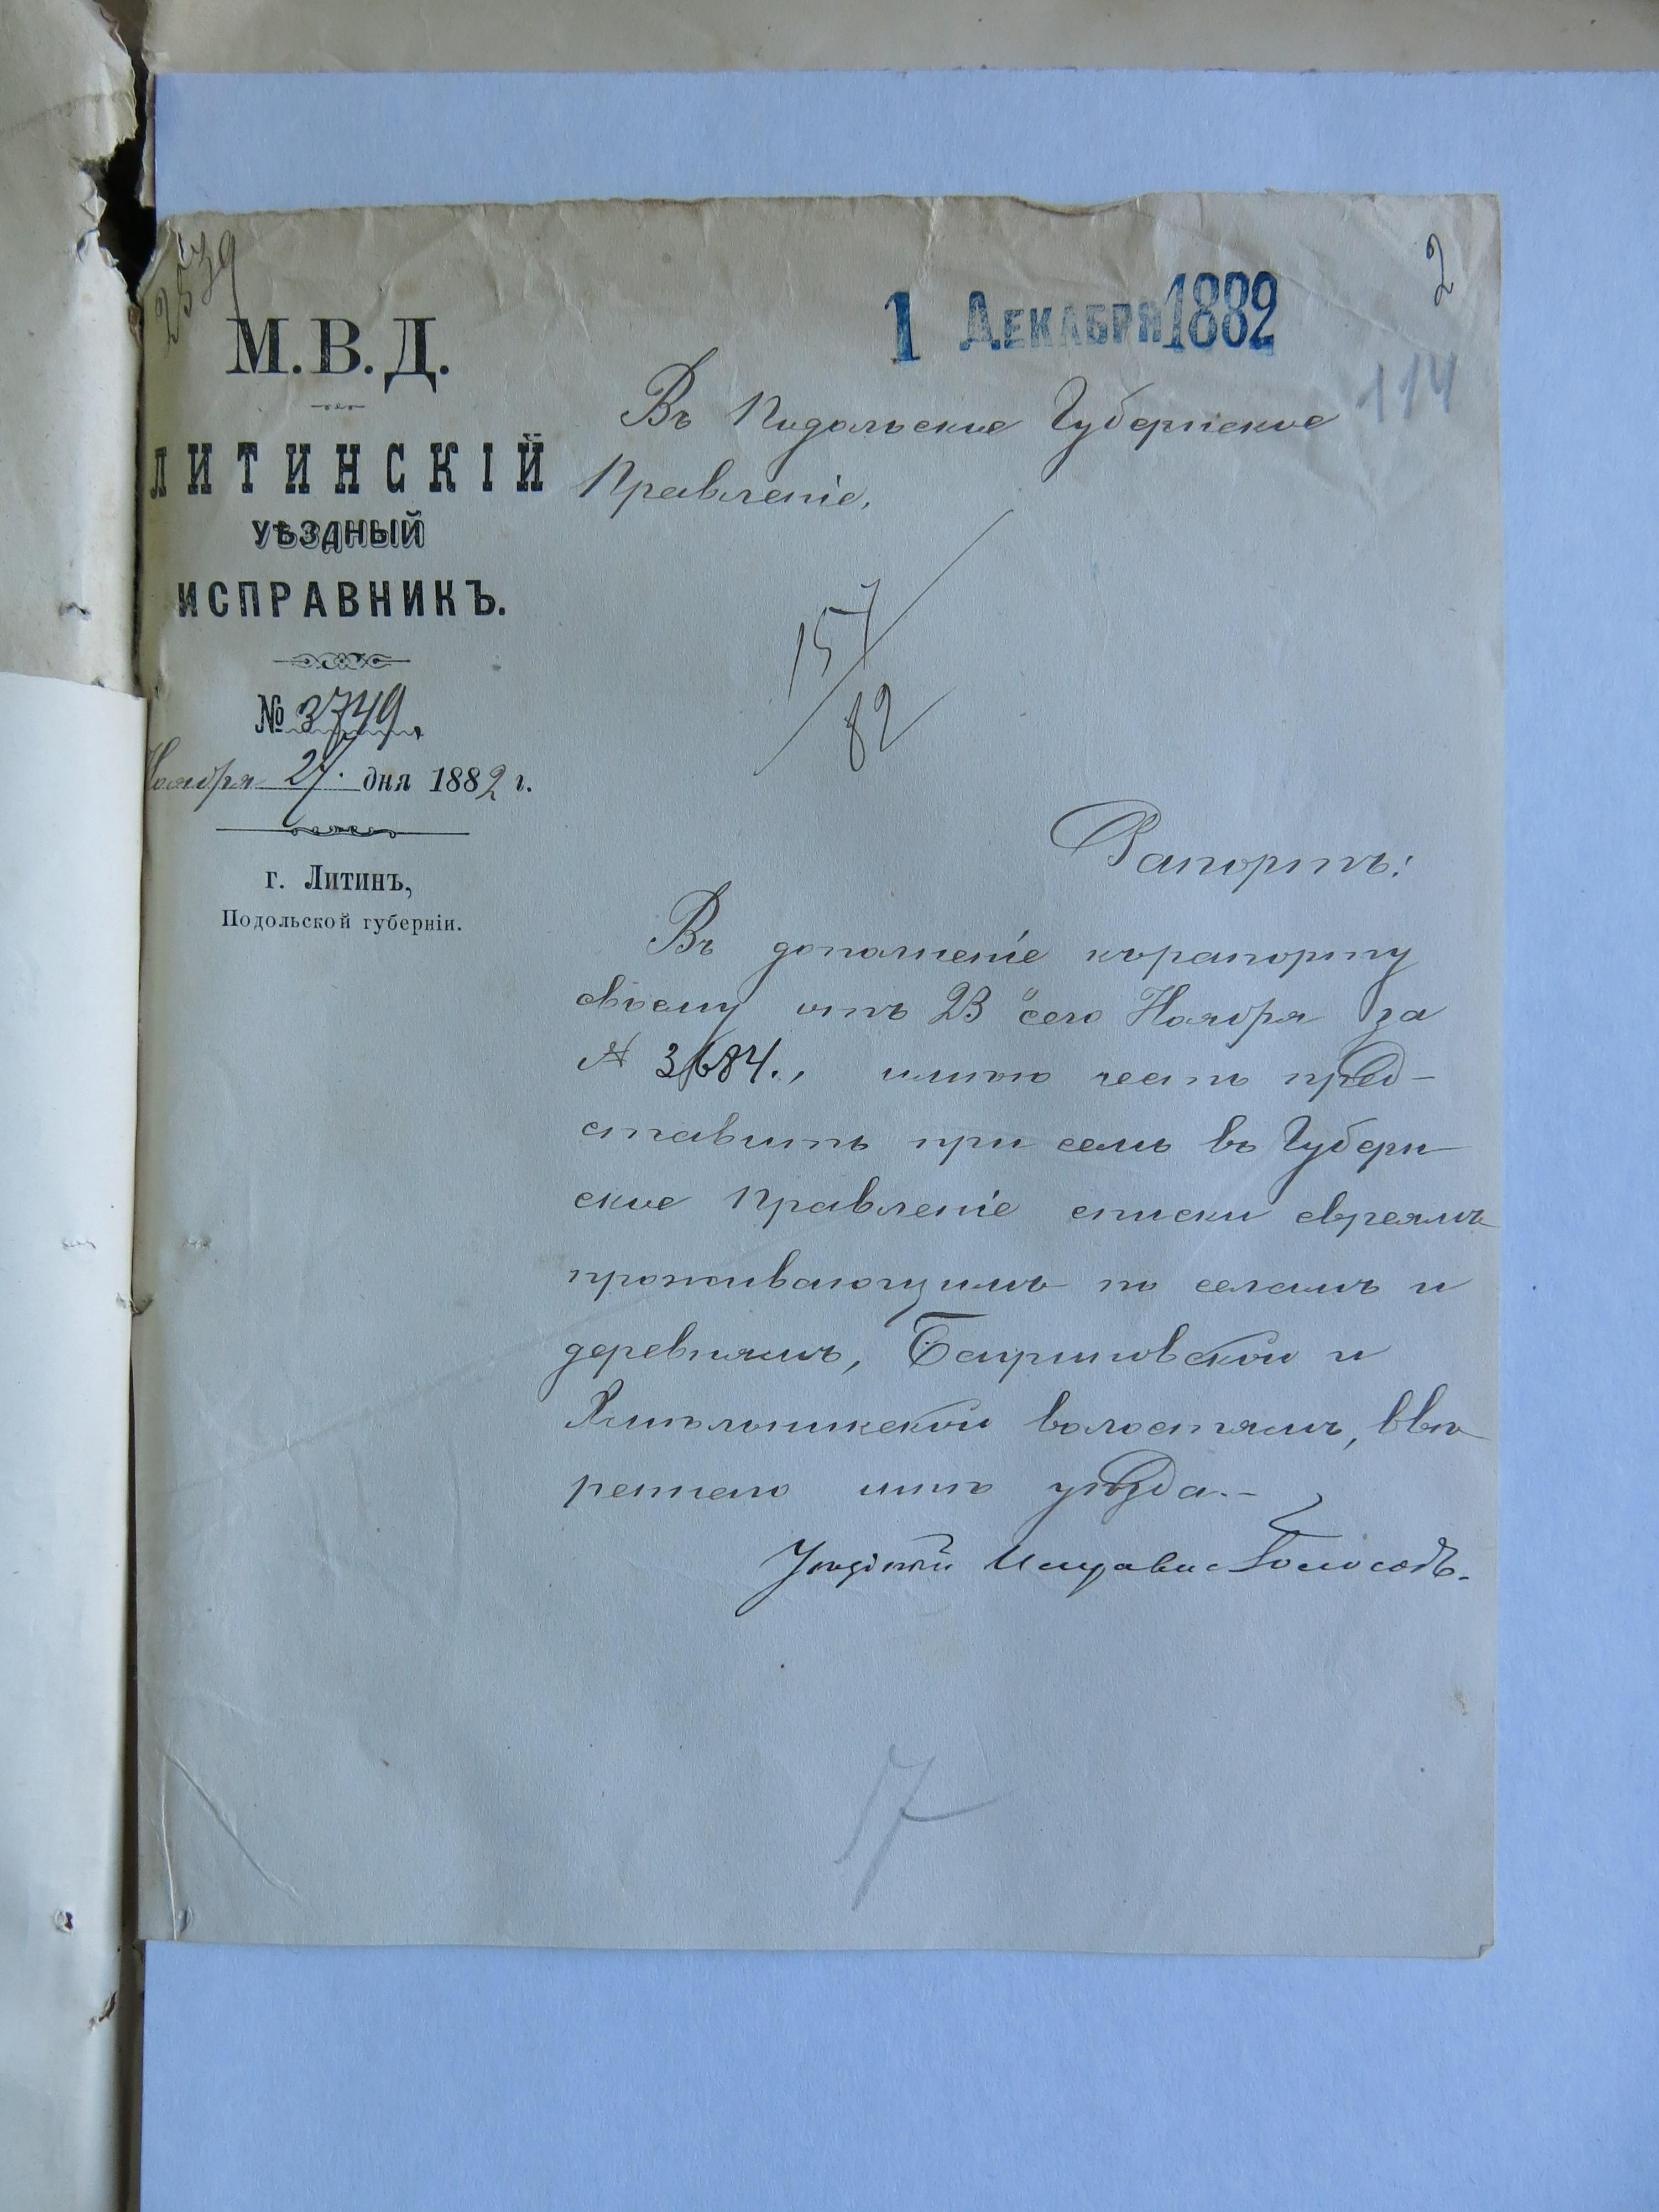 2539
2
1 ДЕКАБРЯ 1882
114
М. В. Д.
ЛИТИНСКІЙ
УѢЗДНЫЙ
ИСПРАВНИКЪ.
№ 3749.
Ноября 27. дня 1882 г.
г. Литинъ,
Подольской губерніи.
Въ Подольское Губернское
Правленіе.
157/82
Рапортъ:
Въ дополненіе къ рапорту
своему отъ 23 сего Ноября за
№ 3684., имѣю честь пред-
ставить при семъ въ Губерн
ское Правленіе списки евреямъ
проживающимъ по селамъ и
деревнямъ, Багриновской и
Хмѣльникской волостямъ, ввѣ
реннаго мнѣ уѣзда.-
Уѣздный Исправн
17